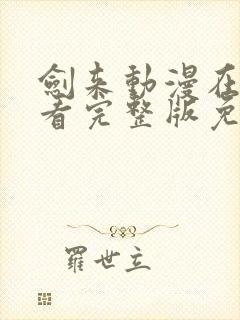 劍来動漫在
看完整版免
羅世立